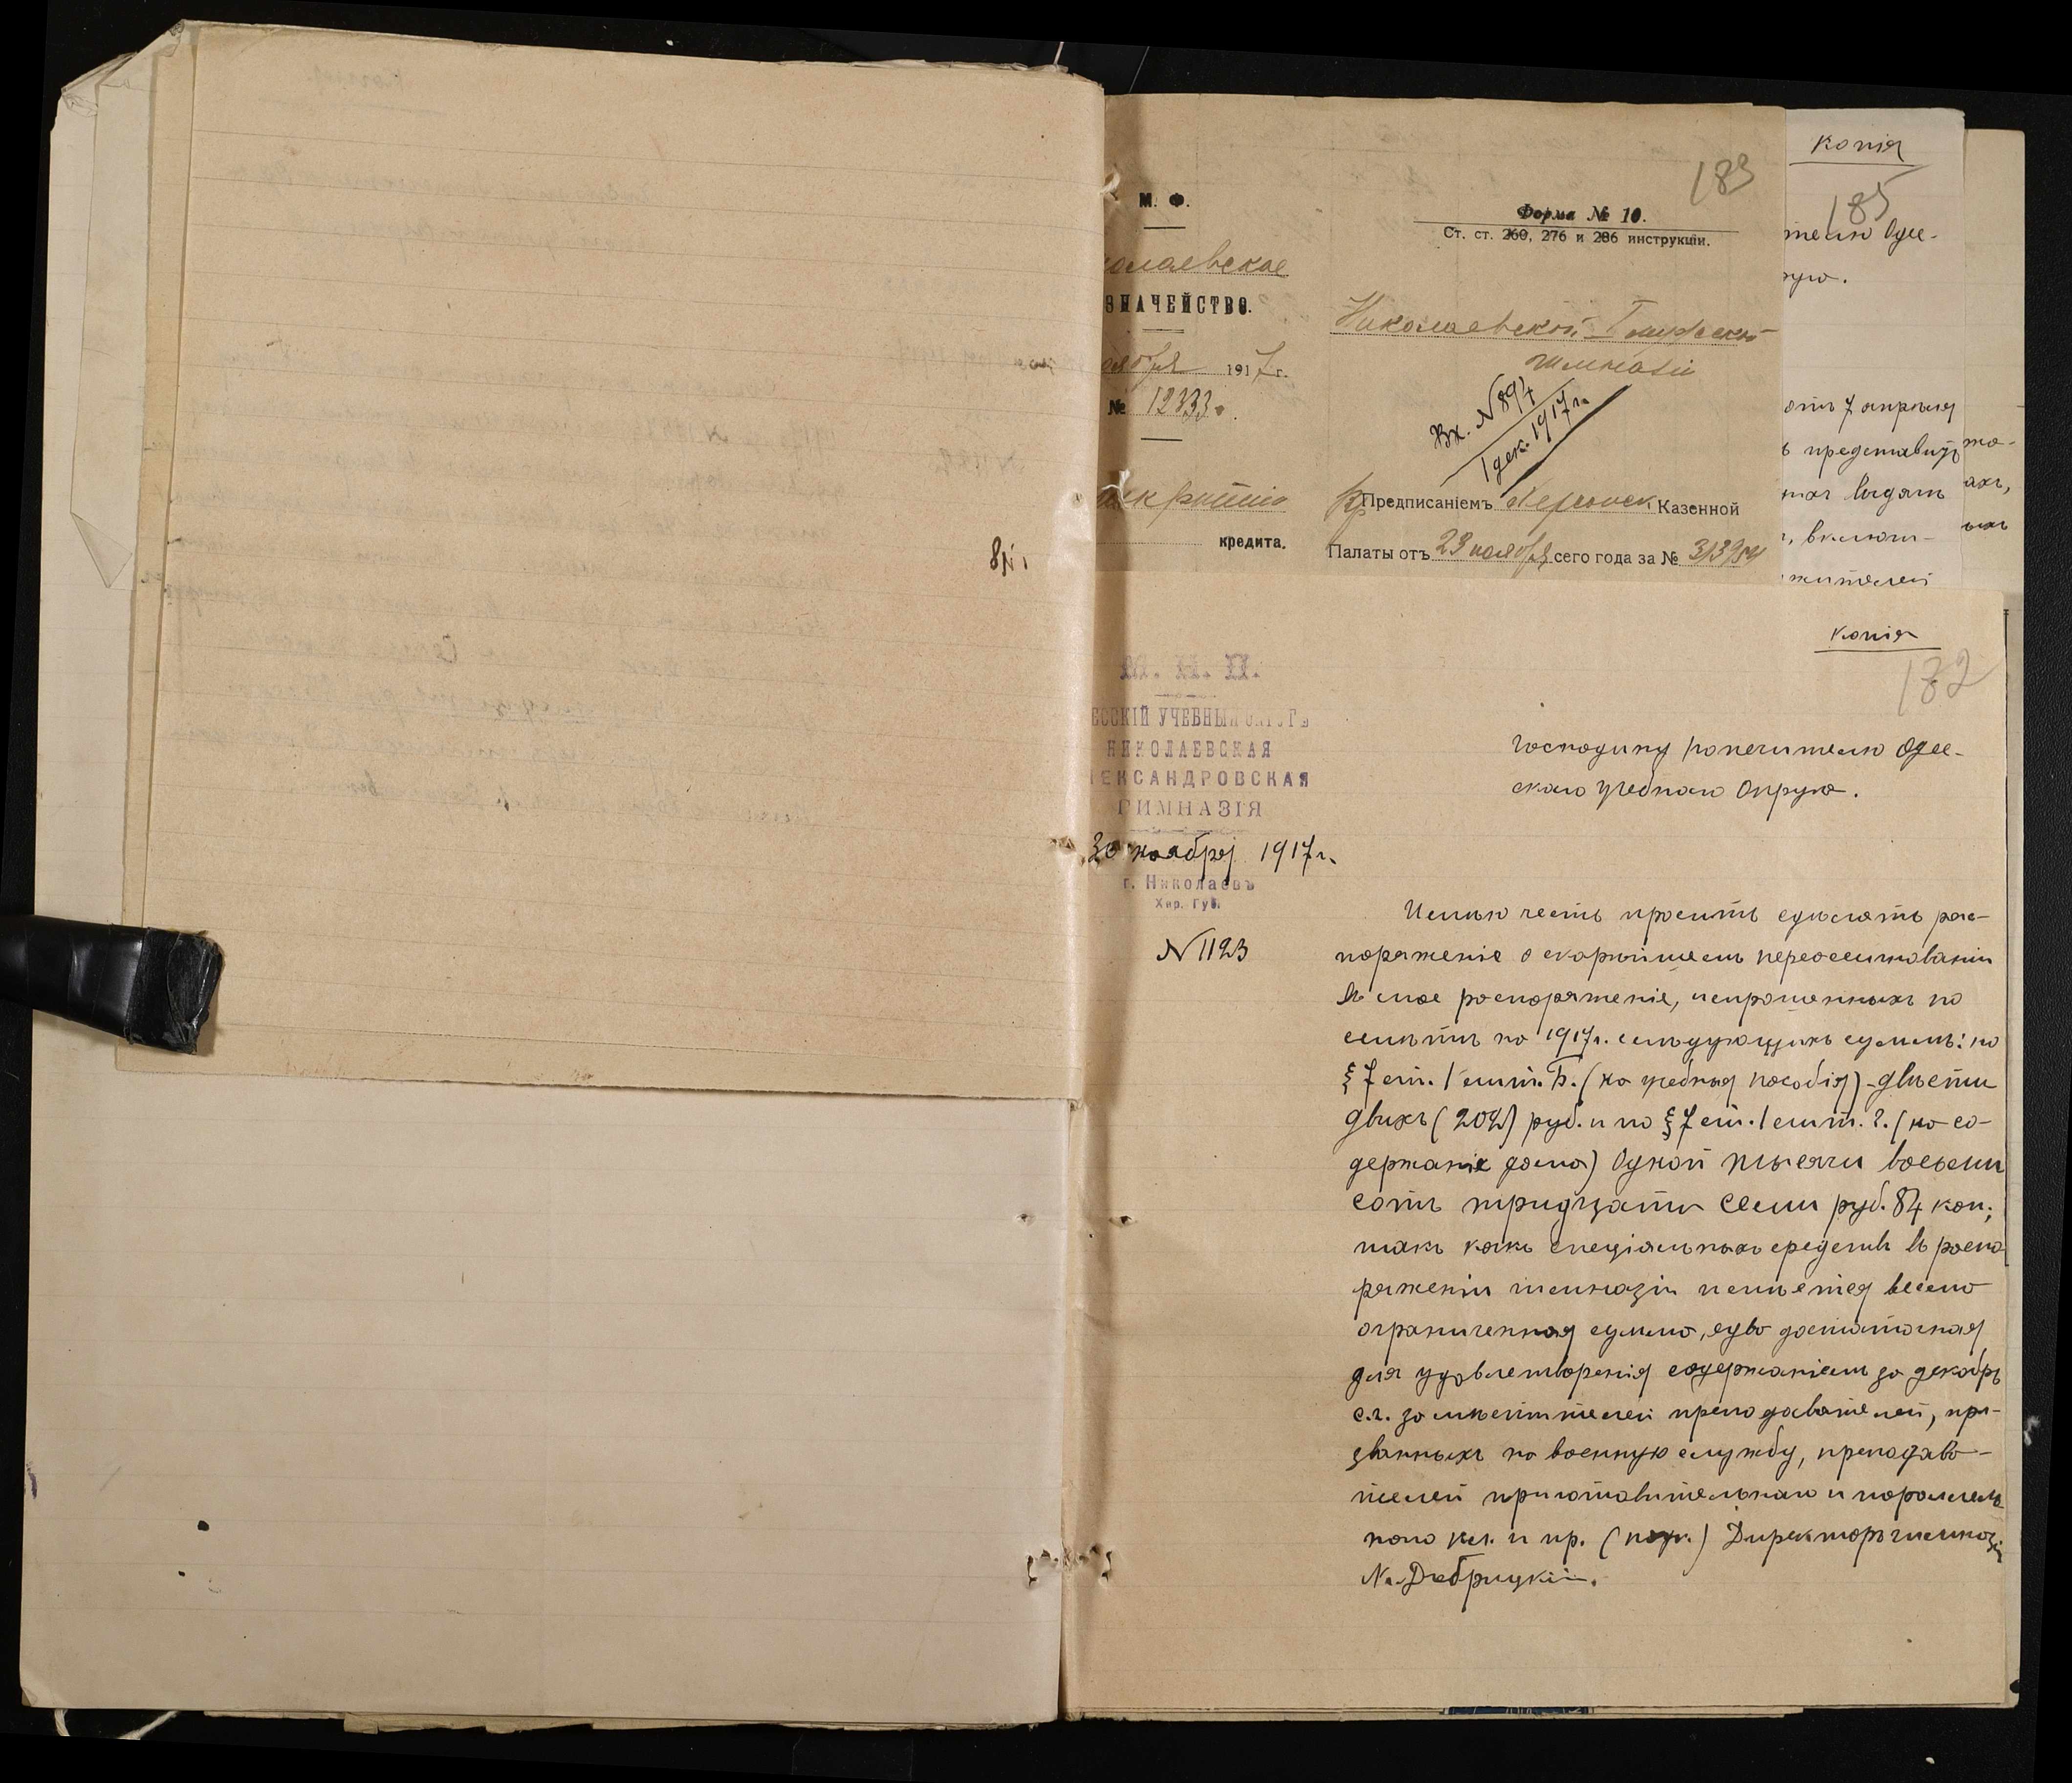 183
М. Ф.
Форма № 10.
Ст. ст. 260, 276 и 286 инструкціи.
олаевское
ЗНАЧЕЙСТВО.
Николаевской
оября 1917 г.
гимназіи
№ 12333
Вх. №894
1 дек. 1917 г.
Предписаніемъ Херсонск. Казенной
кредита.
Палаты отъ 29 ноября сего года за №
копія
185
телю Одес-
руга.
отъ 7 апрѣля
ь представить
, включи-
жителей
копія
182
М. Н. П.
ЕССКІЙ УЧЕБНЫЙ ОКРУГЪ
НИКОЛАЕВСКАЯ
ЕКСАНДРОВСКАЯ
ГИМНАЗІЯ
30 ноября 1917 г.
г. Николаевъ
Хер. Губ.
N 1123
Господину Попечителю Одес-
скаго Учебнаго Округа.
Имѣю честь просить сдѣлать рас-
поряженіе о скорѣйшемъ переассигнованіи
въ мое распоряженіе, испрошенныхъ по
смѣтѣ на 1917 г. слѣдующихъ суммъ: по
§ 7 ст. 1 лит. Б. (на учебныя пособія) - двѣсти
двухъ (202) руб. и по § 7 ст. 1 лит. Г. (на со-
держаніе дома) Одной тысячи восьми
сотъ тридцати семи руб. 84 коп.;
такъ какъ спеціальныхъ средствъ въ распо
ряженіи гимназіи имѣется весьма
ограниченная сумма, едва достаточная
для удовлетворенія содержаніемъ за декабрь
с.г. замѣстителей преподавателей, при-
званныхъ на военную службу, преподава-
телей приготовительнаго и параллель
наго кл. и пр. (подп.) Директоръ гимназіи
Н. Дѣбрицкій.